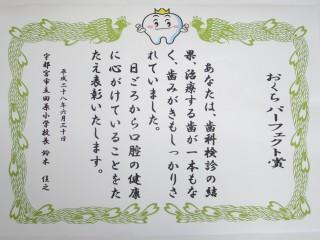 おくちパーフェクト賞
あなたは、歯科検診の結
果、治療する歯が一本もな
く、歯みがきもしっかりさ
れていました。
日ごろから口腔の健康
に心がけていることをた
たえ表彰いたします。
平成二十八年六月三十日
宇都宮市立田原小学校長 鈴木
之